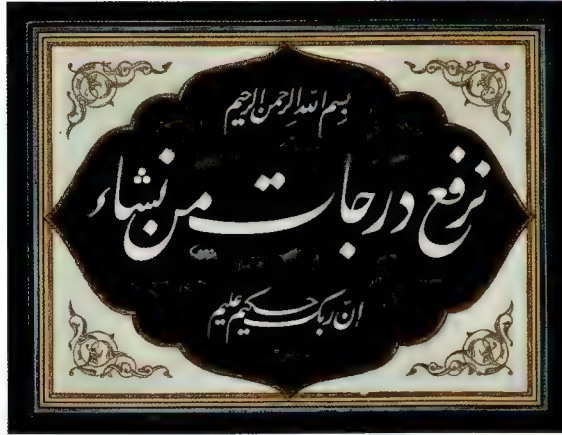 بسم الله الرحمن الرحیم
نرفع درجات من نشاء
انّ ربک حکیم علیم